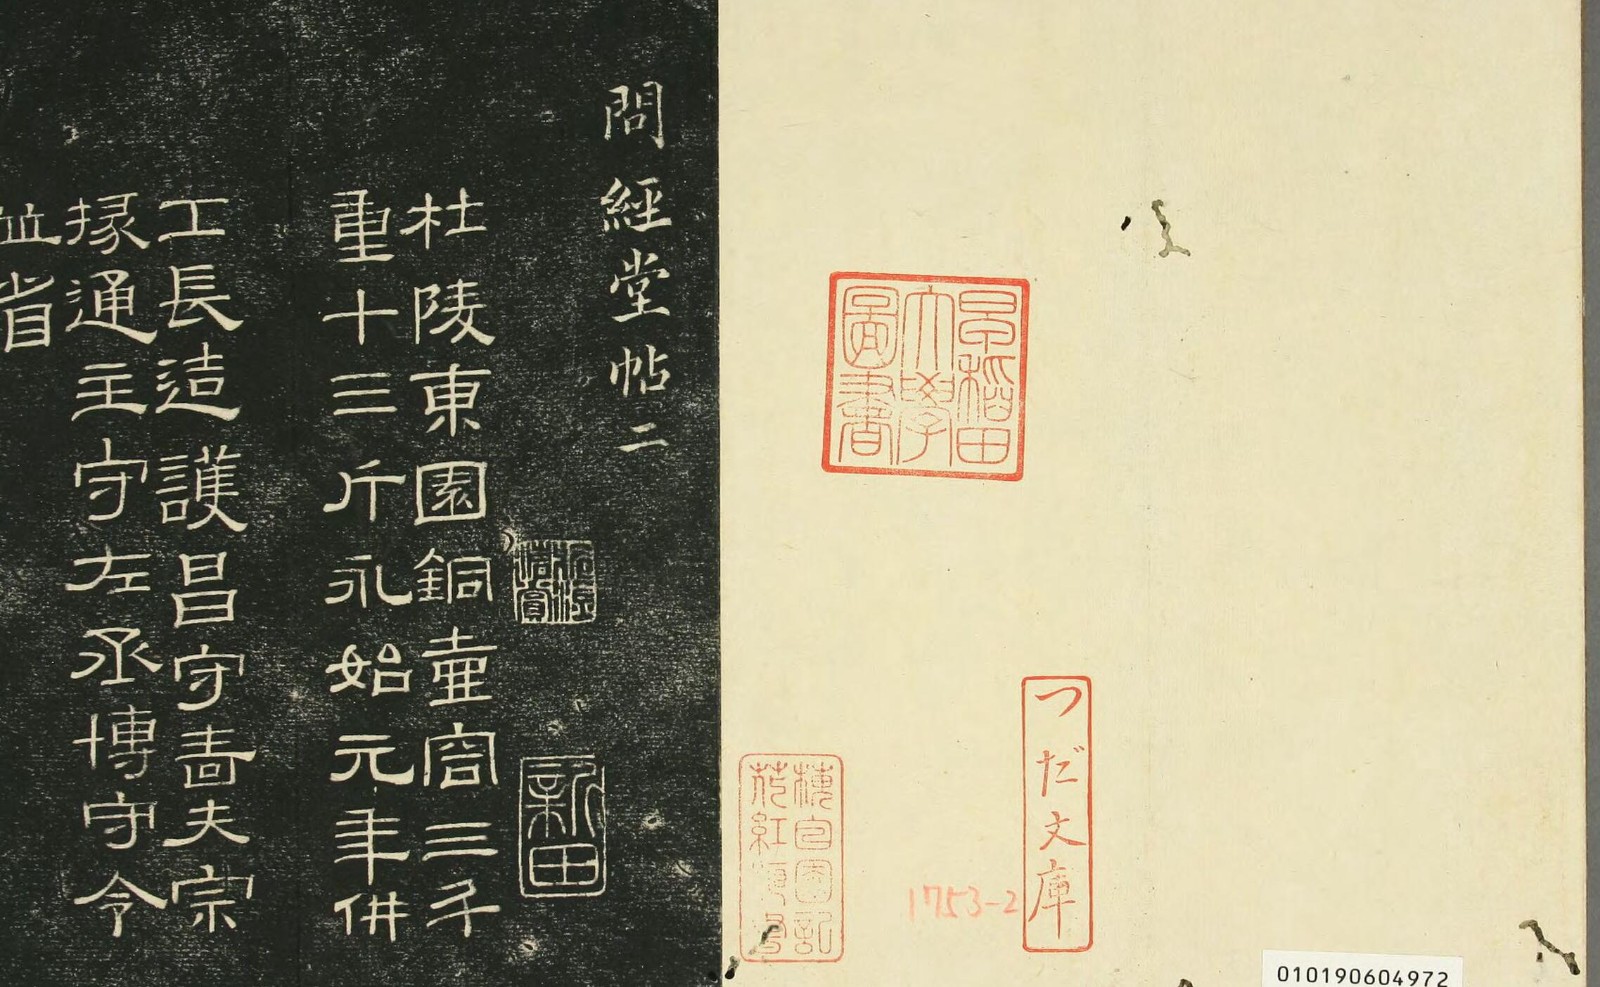 早稻田
大學
圖書
つだ文庫
1753-2
010190604972
問經堂帖二
杜陵東園銅壺容三斗
重十三斤永始元年供
工長造護昌守嗇夫宗
掾通主守左丞博守令
並省